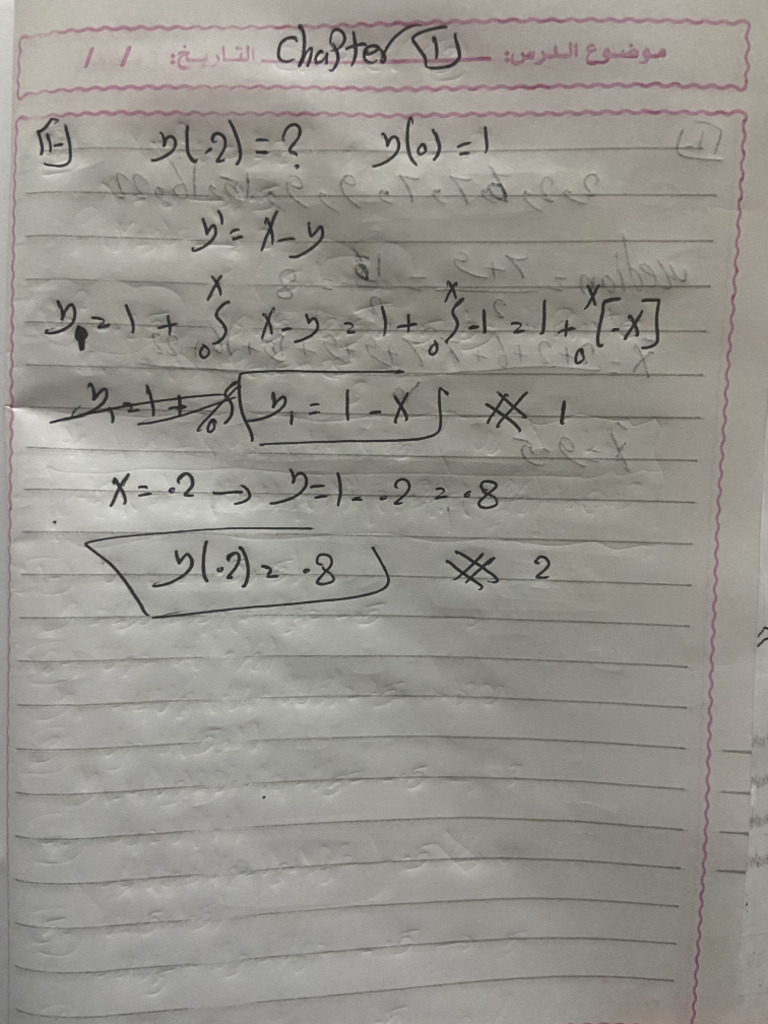 موضوع الدرس: Chapter 1 التاريخ: / /
1- y(.2) = ? y(0) = 1
y' = x - y
y₁ = 1 + ₀∫ˣ x - y = 1 + ₀∫ˣ -1 = 1 + ₀ˣ[-x]
y₁ = 1 - x 1
x = .2 → y = 1 - .2 = .8
y(.2) = .8 2